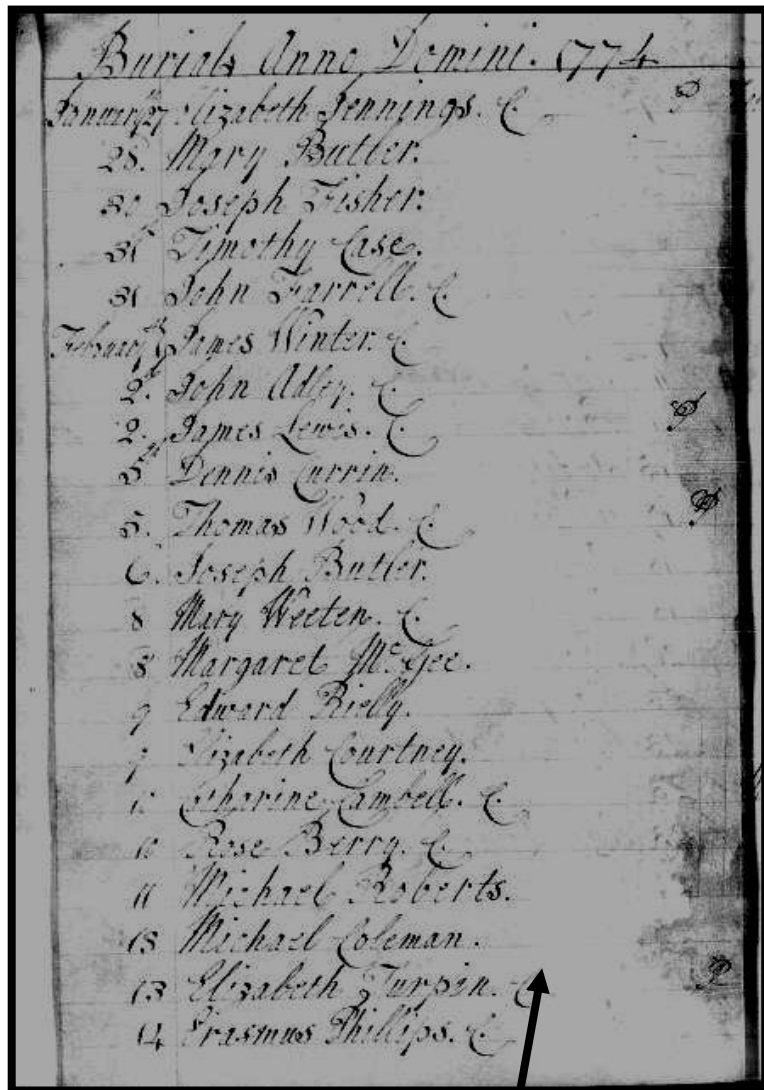 Burials Anno Domini. 1774
January 27 Elizabeth Jennings. C. P
28. Mary Butler.
30 Joseph Fisher.
31 Timothy Case.
31 John Farrell. C.
February James Winter. C.
2. John Adley. C.
2. James Lewis. C. P
5th Dennis Currin.
5. Thomas Wood. C. P
6. Joseph Butler.
8 Mary Weeten. C.
8 Margaret Mc.Gee.
9 Edward Rielly.
9 Elizabeth Courtney.
10 Catharine Cambell. C.
10 Rose Berry. C.
11 Michael Roberts.
13 Michael Coleman.
13 Elizabeth Turpin. C. P
14 Erasmus Phillips. C.